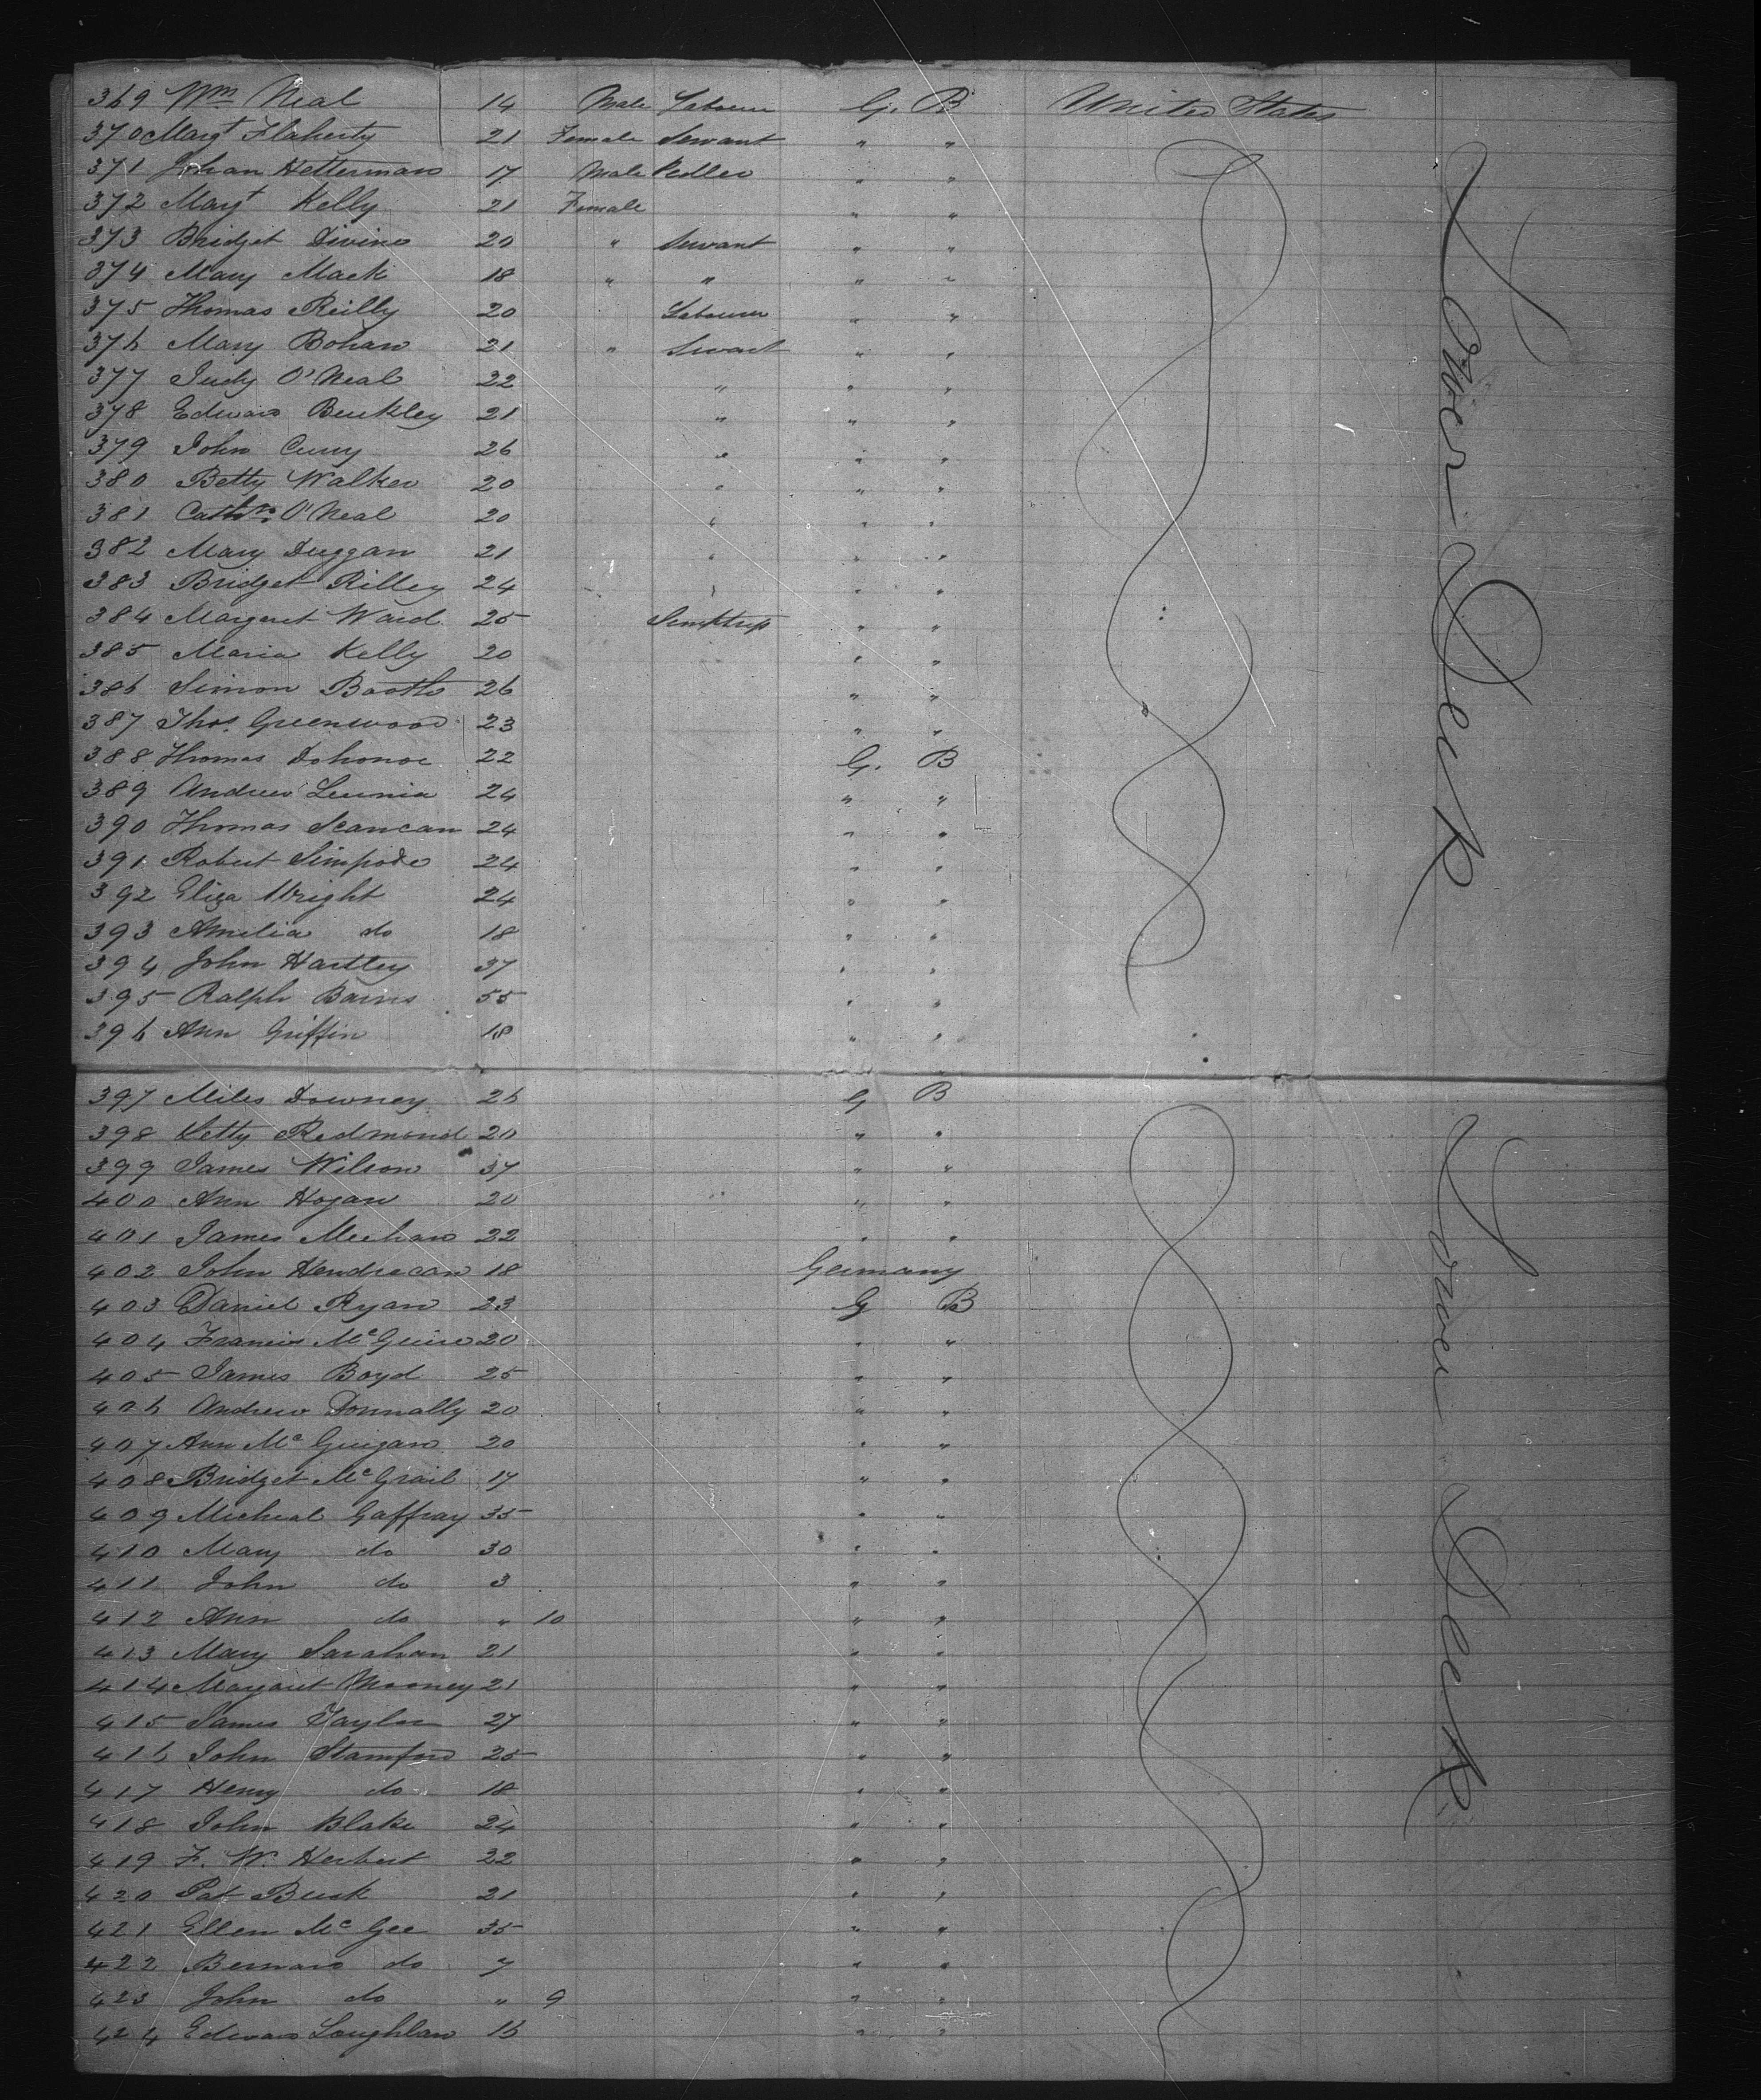 369 Wm Neal 14 Male Labourer G. B United States
370 Margt Flaherty 21 Female Servant " "
371 Johan Hetterman 17 Male Pedler " "
372 Margt Kelly 21 Female " "
373 Bridget Divine 20 " Servant " "
374 Mary Mack 18 " " " "
375 Thomas Reilly 20 Labourer " "
376 Mary Bohan 21 " Servant " "
377 Judy O'Neal 22 " " "
378 Edward Buckley 21 " " "
379 John Curry 26 " " "
380 Betty Walker 20 " " "
381 Cathrn O'Neal 20 " " "
382 Mary Duggan 21 " " "
383 Bridget Rilley 24 " " "
384 Margaret Ward 25 " "
385 Maria Kelly 20 " "
386 Simon Booth 26 " "
387 Thos. Greenwood 23 " "
388 Thomas Dohonoe 22 G. B
389 Andrew 24 " "
390 Thomas Scancan 24 " "
391 Robert 24 " "
392 Eliza Wright 24 " "
393 Amelia do 18 " "
394 John Hartley 37 " "
395 Ralph Barns 55 " "
396 Ann Griffin 18 " "
Lower Deck
397 Miles Downey 26 G B
398 Letty Redmond 20 " "
399 James Wilson 37 " "
400 Ann Hogan 20 " "
401 James Meehan 22 " "
402 John Hendrecan 18 Germany
403 Daniel Ryan 23 G B
404 Francis McGuire 20 " "
405 James Boyd 25 " "
406 Andrew Donnally 20 " "
407 Ann McGuigan 20 " "
408 Bridget McGrail 17 " "
409 Micheal Gaffray 35 " "
410 Mary do 30 " "
411 John do 3 " "
412 Ann do " 10 " "
413 Mary Sarahan 21 " "
414 Margaret Mooney 21 " "
415 James Taylor 27 " "
416 John Stamford 25 " "
417 Henry do 18 " "
418 John Blake 24 " "
419 F. W. Herbert 22 " "
420 Pat Burk 21 " "
421 Ellen McGee 35 " "
422 Bernard do 7 " "
423 John do " 9 " "
424 Edward Loughlan 16 " "
Lower Deck